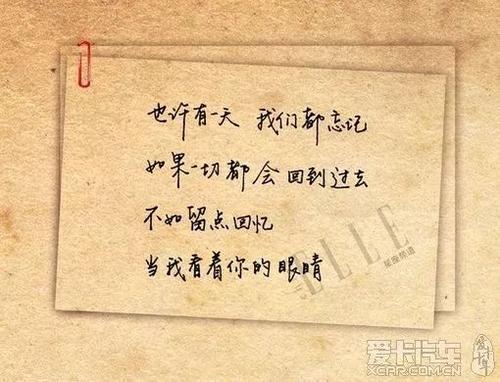 也许有一天 我们都忘记
如果一切都会回到过去
不如留点回忆
当我看着你的眼睛
ELLE
星座频道
爱卡汽车
XCAR.COM.CN